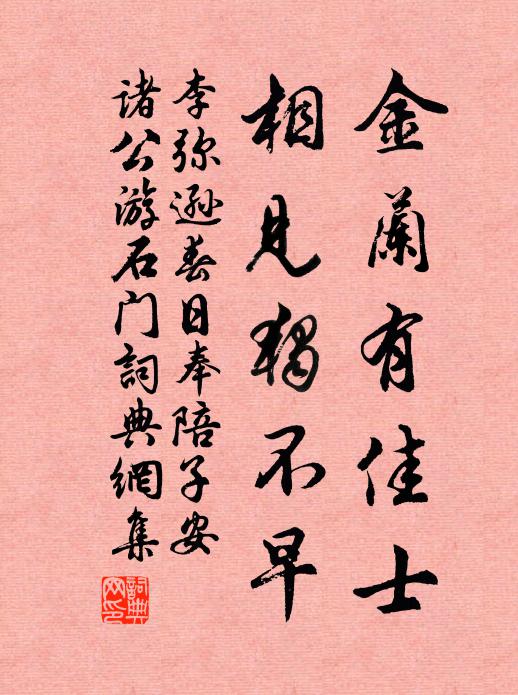 金蘭有佳士
相見獨不早
李弥遜春日奉陪子安
诸公游石门詞典網集
詞典網印